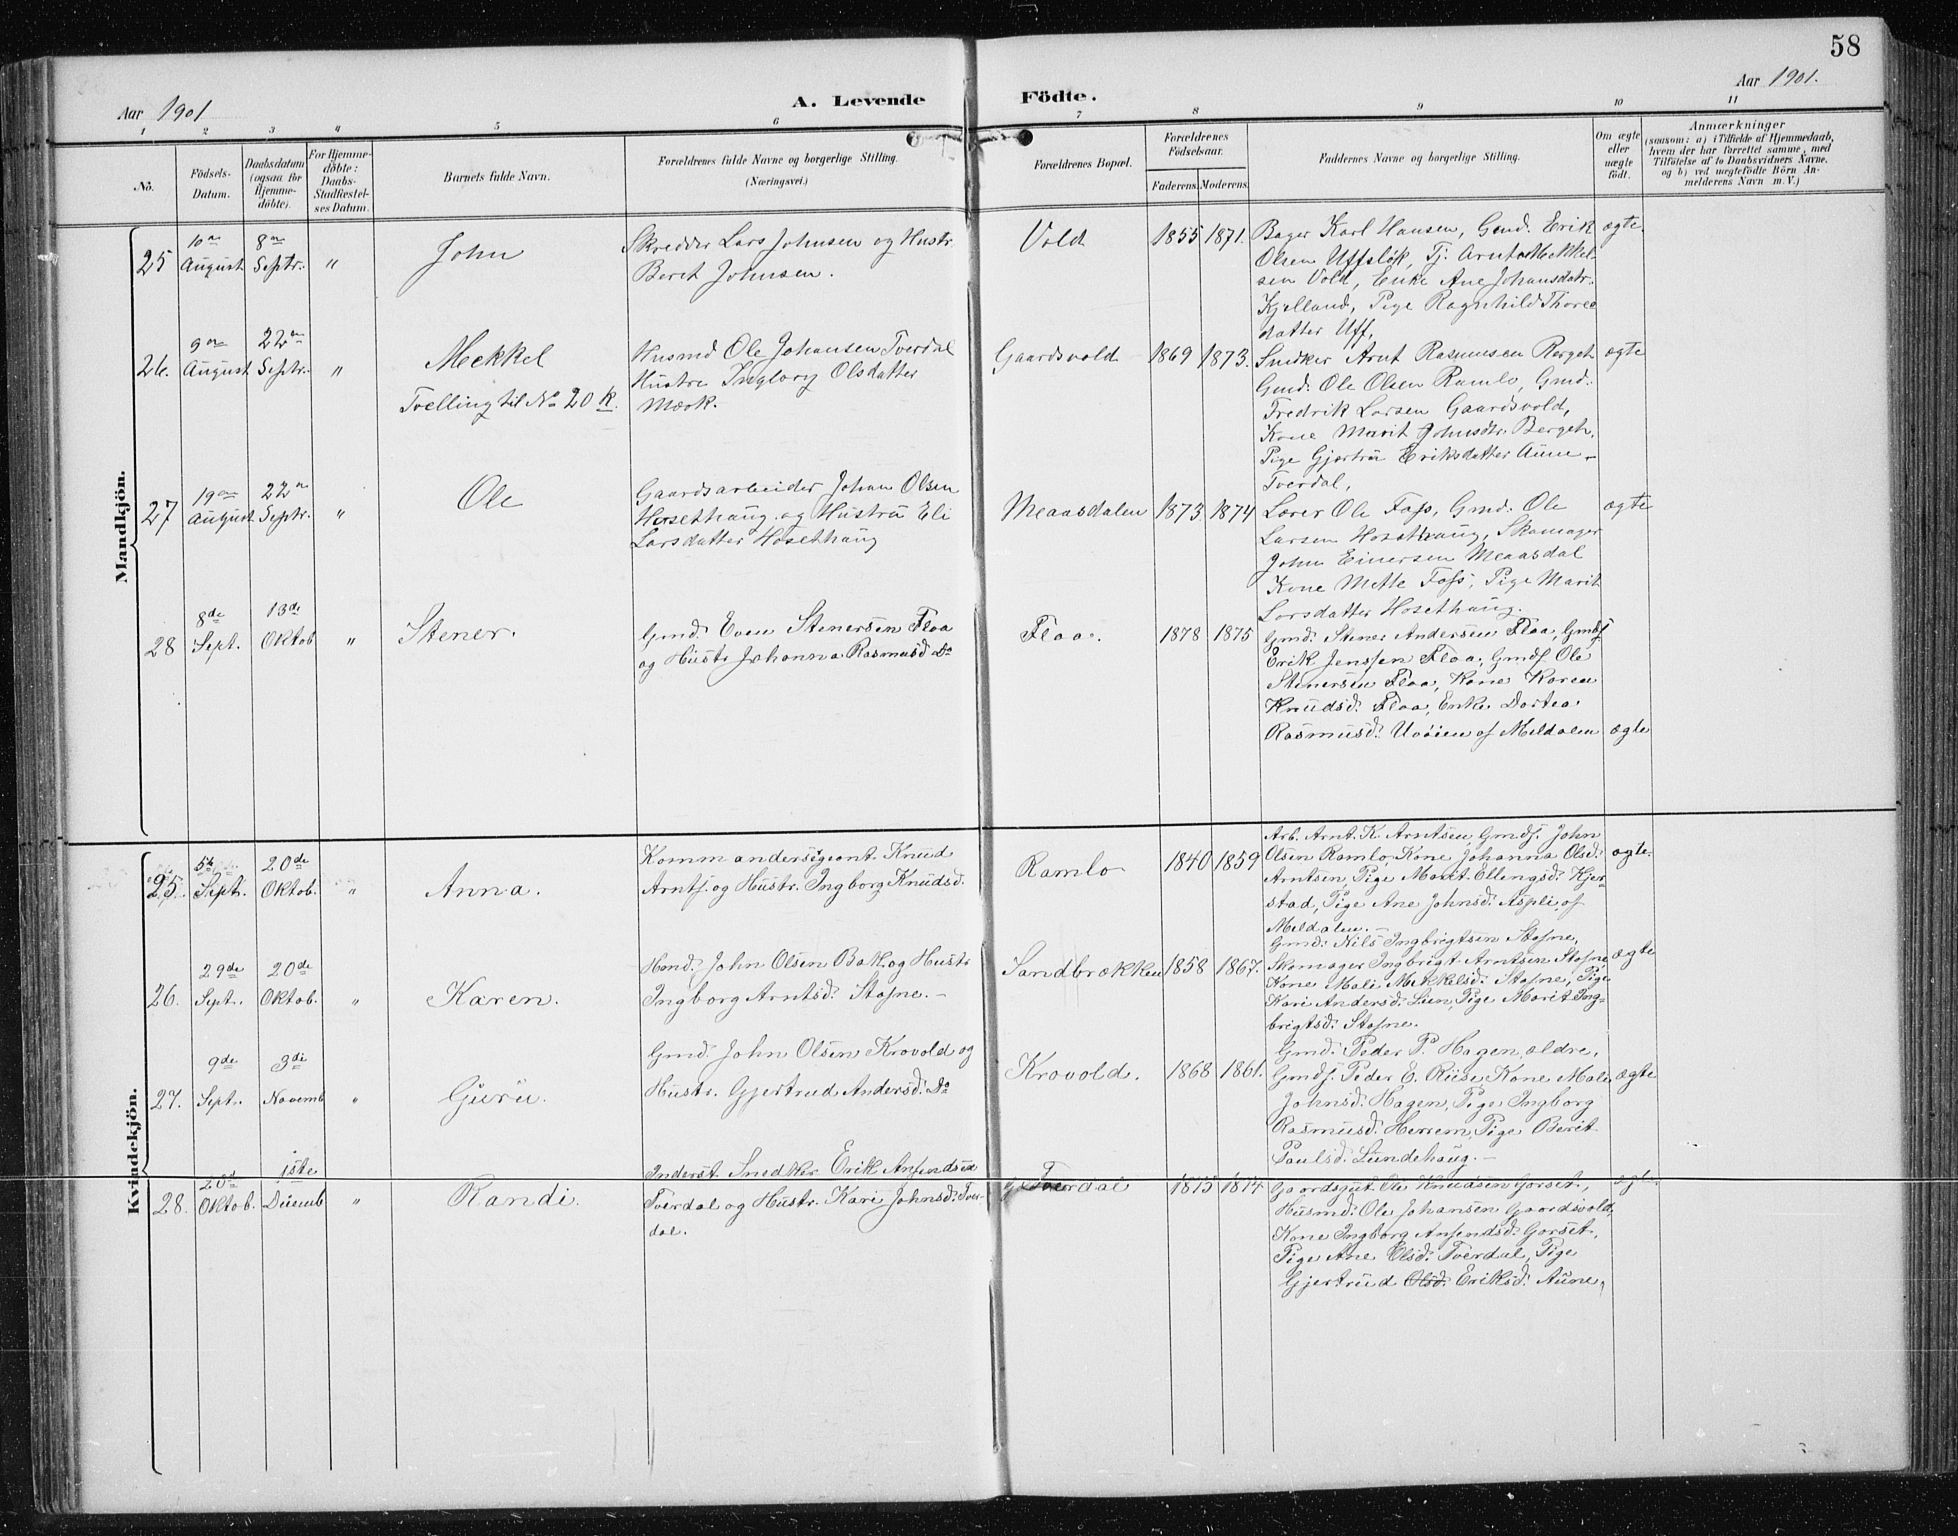 58
Aar 1901
A. Levende Födte.
Aar 1901.
1 2 3 4 5 6 7 8 9 10 11
No.
Födsels-
Datum.
Daabsdatum
(ogsaa for
Hjemme-
döbte).
For Hjemme-
döbte:
Daabs-
Stadfæstel-
ses Datum.
Barnets fulde Navn.
Forældrenes fulde Navne og borgerlige Stilling.
(Næringsvei.)
Forældrenes Bopæl.
Forældrenes
Födselsaar.
Faderens. Moderens.
Faddernes Navne og borgerlige Stilling.
Om ægte
eller
uægte
födt.
Anmærkninger
(saasom: a) i Tilfælde af Hjemmedaab,
hvem der har forrettet samme, med
Tilföielse af to Daabsvidners Navne,
og b) ved uægtefödte Börn An-
melderens Navn m. V.)
Mandkjön.
25
10de
August
8de
Septr.
"
John
Skredder Lars Johnsen og Hustr.
Beret Johnsen.
Vold
1855 1871.
Bager Karl Hansen, Gmd. Erik
Olsen Uffslök, Tj. Arnt Mekkel-
sen Vold, Enke Ane Johansdatr.
Kjelland, Pige Ragnhild Thores
datter Uff,
ægte
26.
9de
August
22de
Septr.
"
Mekkel
Tvelling til No 20 K.
Husmd Ole Johansen Tverdal
Hustru Ingborg Olsdatter
Mærk.
Gaardsvold
1869 1873.
Snidker Arnt Rasmusen Berget
Gmd. Ole Olsen Ramlo, Gmd.
Fredrik Larsen Gaardsvold,
Kone Marit Johnsdtr. Berget,
Pige Gjertru Eriksdatter Aune-
Tverdal,
ægte
27
19de
August
22de
Septr.
"
Ole
Gaardsarbeider Johan Olsen
Hosethaug og Hustru Eli
Larsdatter Hosethaug
Meaasdalen
1873 1874
Lærer Ole Foss, Gmd. Ole
Larsen Hosethaug, Skomager
John Einersen Meaasdal
Kone Mette Foss, Pige Marit
Larsdatter Hosethaug.
ægte
28
8de
Sept.
13de
Oktob
"
Stener.
Gmd. Even Stenersen Floa
og Hustr Johanna Rasmusd. Do
Floa.
1878 1875
Gmd. Stener Andersen Floa, Gmds
Erik Jenssen Floa, Gmds Ole
Stenersen Floa, Kone Karen
Knudsd. Floa, Enke Dortea
Rasmusd. Uvöien af Meldalen
ægte
Kvindekjön.
25.
5te
Septr.
20de
Oktob.
"
Anna.
Kommandersigeant Knud
Arnts. og Hustr. Ingborg Knudsd.
Ramlo
1840 1859
Arb. Arnt K. Arntsen Gmds. John
Olsen Ramlo, Kone Johanna Olsd.
Arntsen, Pige Marit Ellingsd. Kjer-
stad, Pige Ane Johnsd. Aspli, af
Meldalen.-
ægte.
26.
29de
Sept.
20de
Oktob.
"
Karen.
Hmd. John Olsen Bak. og Hustr
Ingborg Arntsd. Stofne.-
Sandbrækken
1858 1867.
Gmd. Nils Ingbrigtsen Stofne,
Skomager Ingbrigt Arntsen Stofne
Kone Mali Mekkelsd. Stofne, Pige
Kari Andersd. Lien, Pige Marit Ing-
brigtsd. Stofne.
ægte
27.
9de
Sept.
3di
Novemb
"
Guru.
Gmd. John Olsen Krovold og
Hustr. Gjertrud Andersd. Do
Krovold.
1868 1861.
Gmd. Peder P. Hagen, ældre,
Gmds. Peder E. Rise, Kone Mali
Johnsd. Hagen, Pige Ingborg
Rasmusd. Herrem, Pige Berit
Paulsd. Lundehaug.-
ægte
28.
20d
Oktob.
1ste
Decemb
"
Randi.
Inderst Snedker Erik Anfindsen
Tverdal og Hustr. Kari Johnsd. Tver-
dal.
Tverdal
1875 1874
Gaardsgut Ole Knudsen Gorset,
Husmd. Ole Johansen Gaardsvold,
Kone Ingborg Anfindsd. Gorset,
Pige Ane Olsd. Tverdal, Pige
Gjertrud Olsd. Eriksd. Aune,
ægte